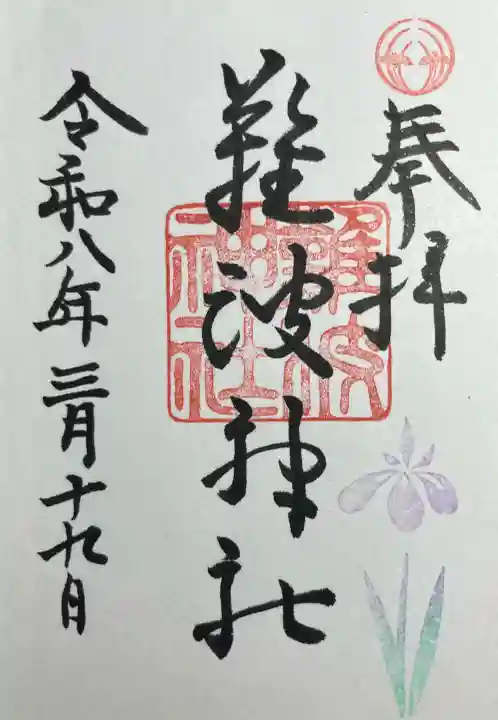 奉拝
難波神社
難波神社
令和八年三月十九日